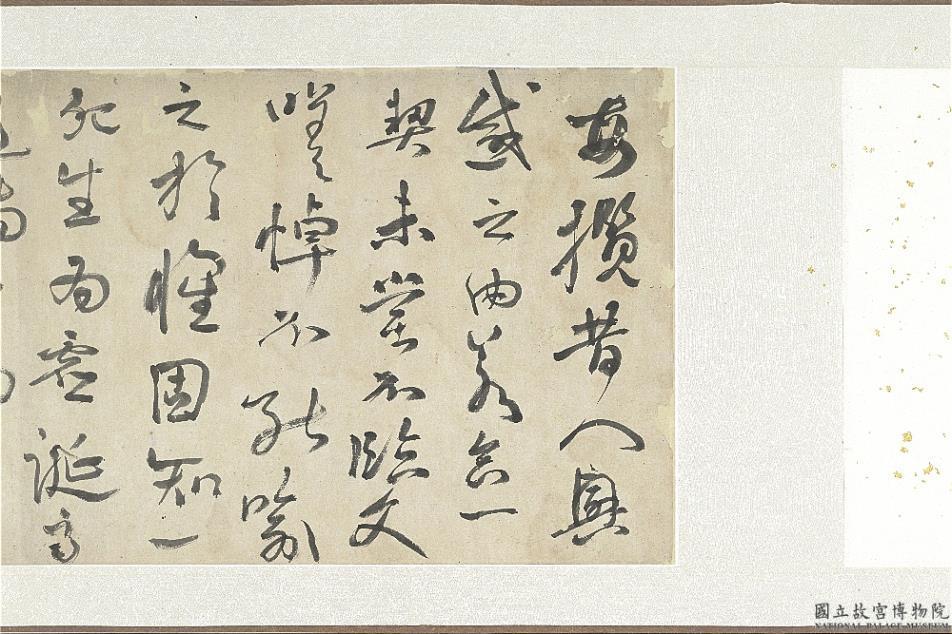 每攬昔人興
感之由若合一
契未嘗不臨文
嗟悼不能喻
之於懷固知一
死生為虛誕齊
國立故宮博物院
NATIONAL PALACE MUSEUM